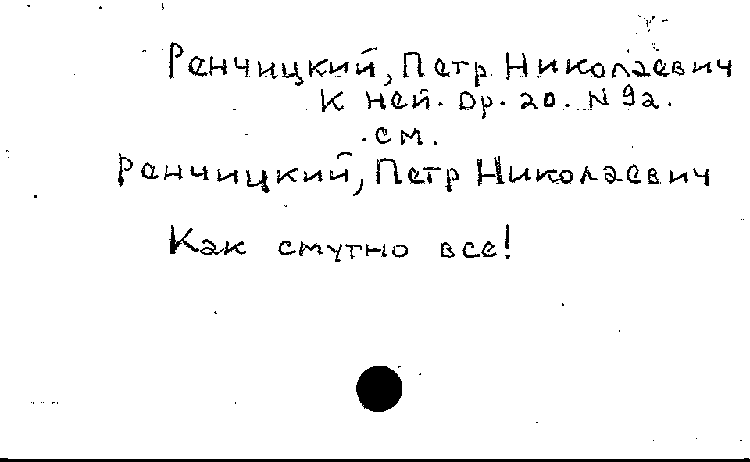 Ренчицкий, Петр Николаевич
К ней. Op. 20. N 9a.
см.
Ренчицкий, Петр Николаевич
Как смутно все!